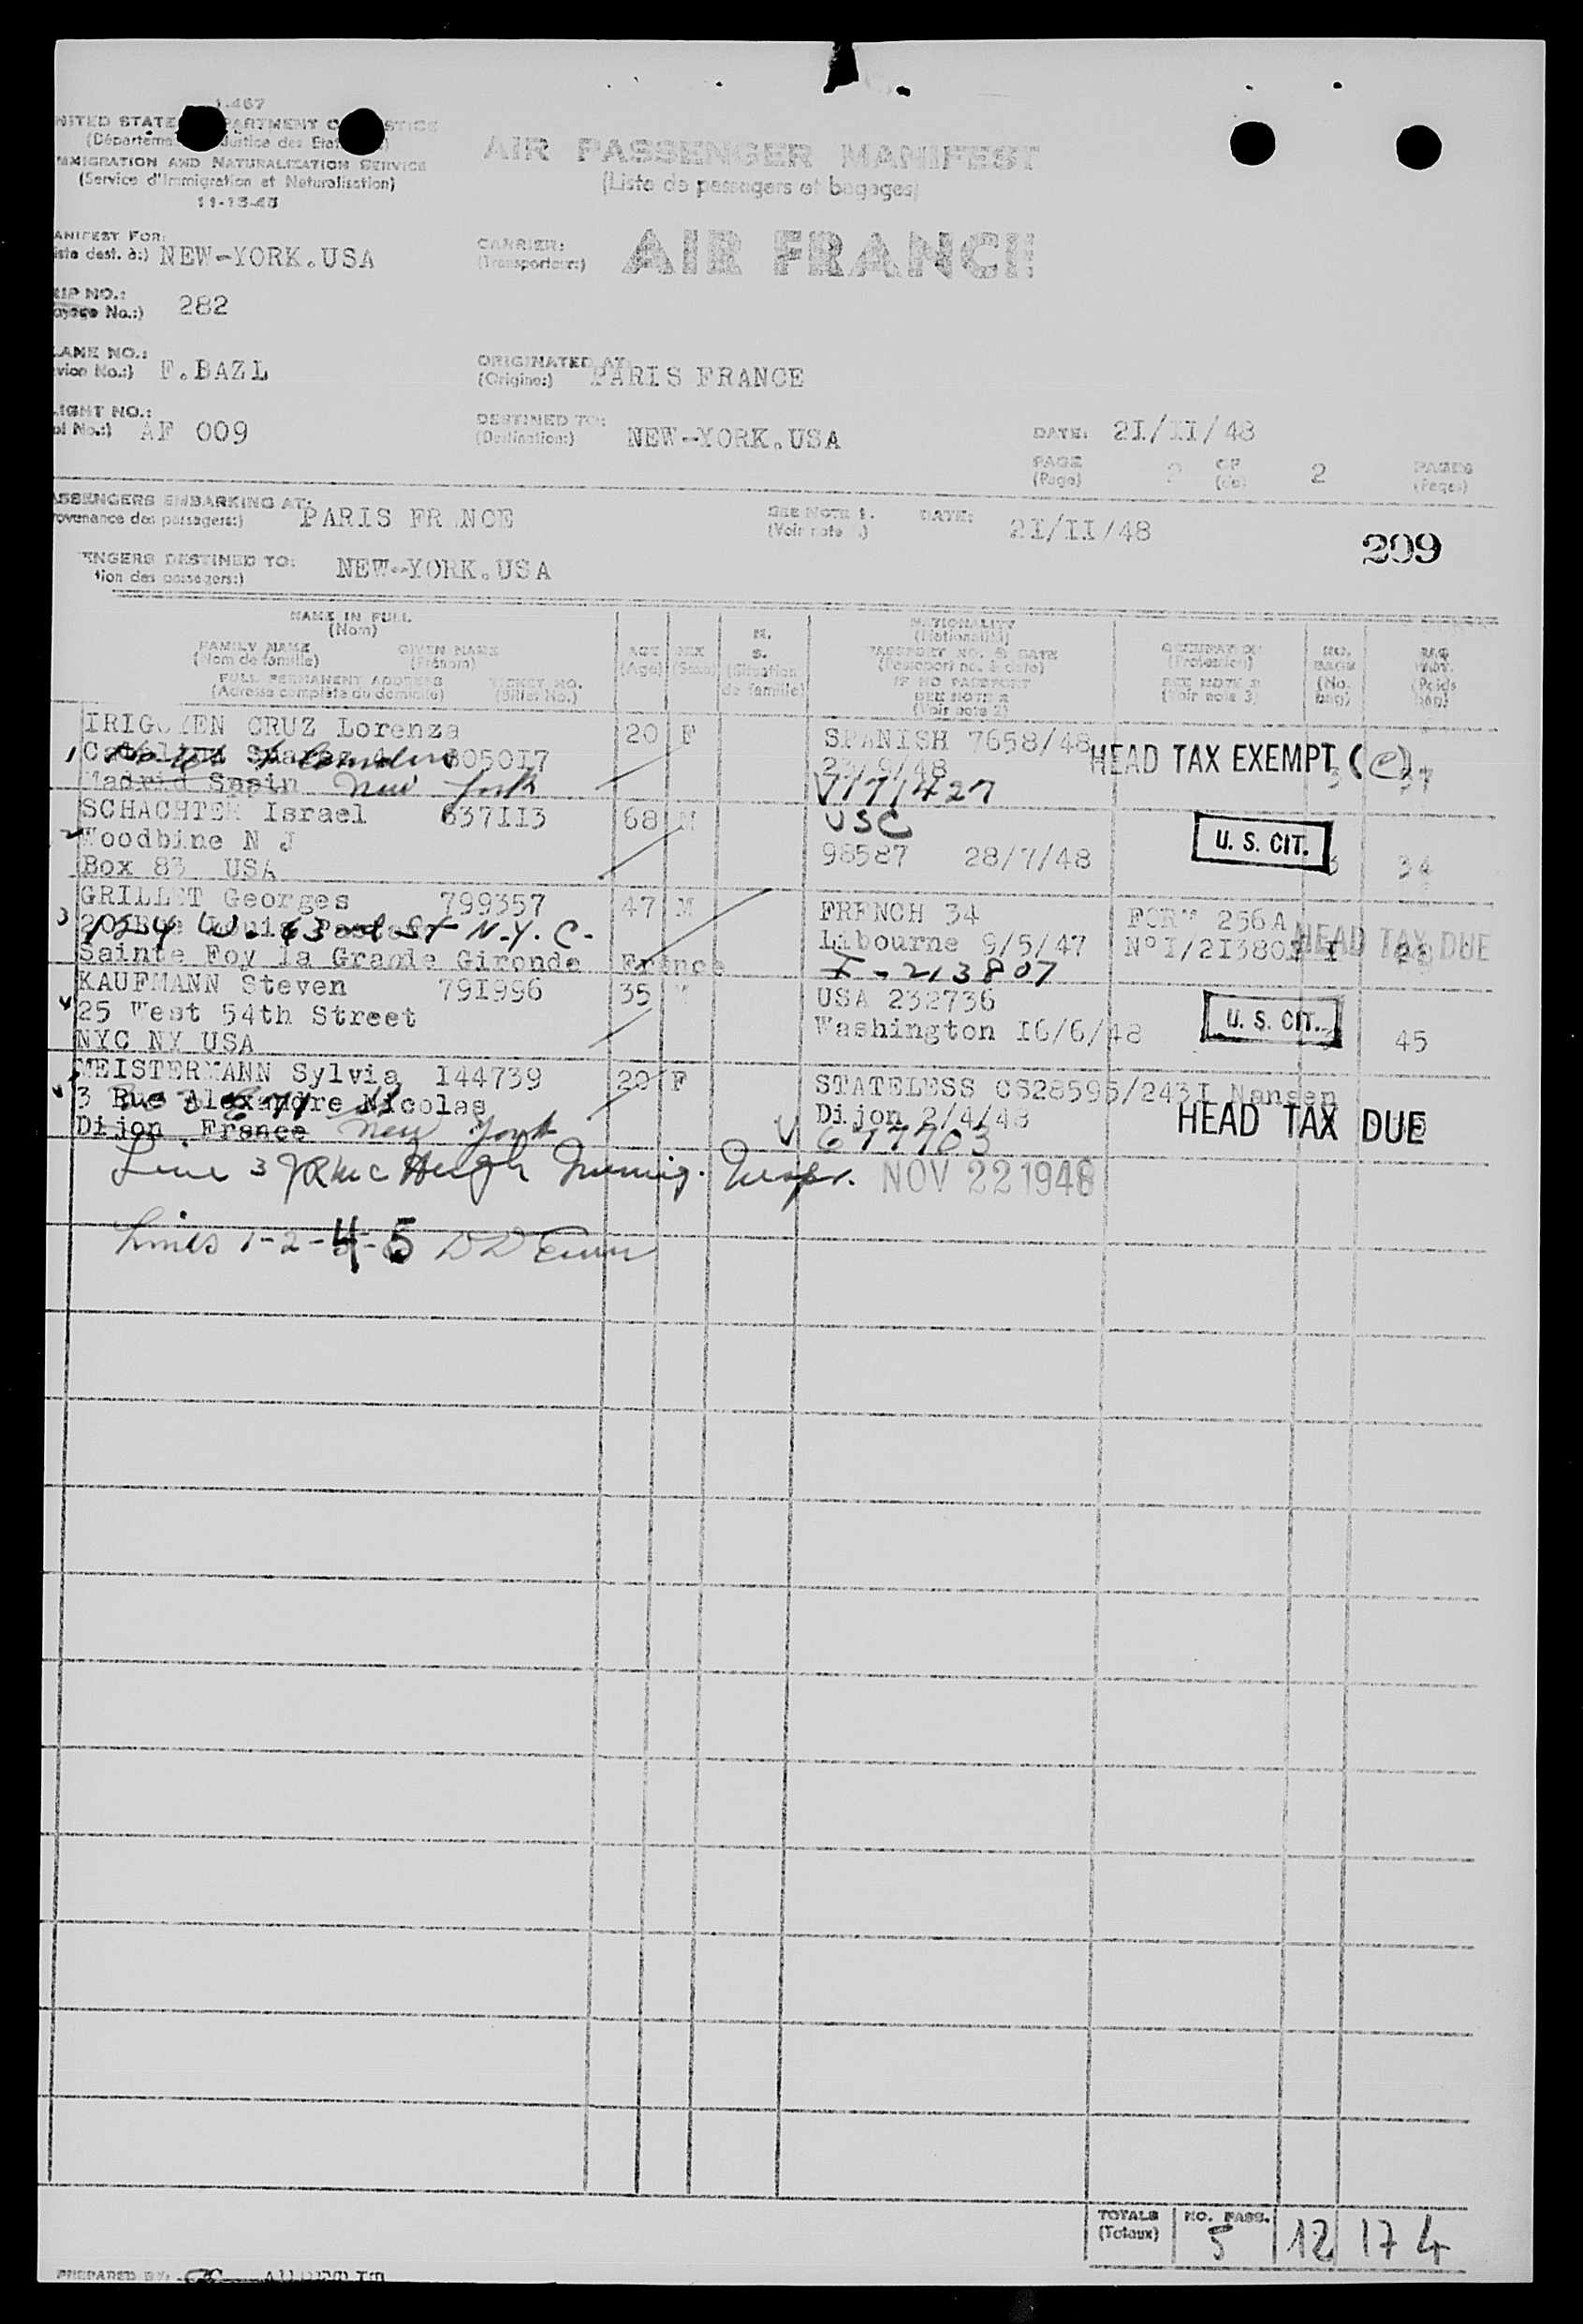 I-467
UNITED STATES DEPARTMENT OF JUSTICE
(Service d'Immigration et Naturalisation)
IMMIGRATION AND NATURALIZATION SERVICE
11-15-45
AIR PASSENGER MANIFEST
(Liste de passagers et bagages)
MANIFEST FOR: NEW-YORK.USA
(Liste dest. à:)
CARRIER: AIR FRANCE
(Transporteur:)
TRIP NO.: 282
(Voyage No.:)
PLANE NO.: F.BAZL
(Avion No.:)
ORIGINATED AT: PARIS FRANCE
(Origine:)
FLIGHT NO.: AF 009
(Vol No.:)
DESTINED TO: NEW-YORK.USA
(Destination:)
DATE: 2I/II/48
PAGE 2 OF 2 PAGES
(Page) (de) (Pages)
PASSENGERS EMBARKING AT: PARIS FR NCE
(Provenance des passagers:)
SEE NOTE 1. DATE: 2I/II/48
(Voir note 1.)
209
PASSENGERS DESTINED TO: NEW--YORK.USA
NAME IN FULL
(Nom)
FAMILY NAME GIVEN NAME
(Nom de famille) (Prénom)
FULL PERMANENT ADDRESS TICKET NO.
(Adresse complète du domicile) (Billet No.)
AGE
(Age)
SEX
(Sexe)
M.
S.
(Situation
de famille)
NATIONALITY
(Nationalité)
PASSPORT NO. & DATE
(Passeport no. & date)
IF NO PASSPORT
SEE NOTE 2
(Voir note 2)
OCCUPATION
(Profession)
SEE NOTE 3
(Voir note 3)
NO.
BAGS
(No.
bag)
BAG
WGT.
(Poids
bag)
1 IRIGOYEN CRUZ Lorenza 20 F SPANISH 7658/48
805017 23/9/48 HEAD TAX EXEMPT (C) 3 37
Madrid Spain New York V171427
2 SCHACHTER Israel 637II3 68 M USC
Woodbine N J 98587 28/7/48 U. S. CIT. 3 34
Box 83 USA
3 GRILLET Georges 799357 47 M FRENCH 34 FORM 256A
124 W. 63rd St N.Y.C. Libourne 9/5/47 N°I/2I3807 I HEAD TAX DUE
Sainte Foy la Grande Gironde France I-213807
KAUFMANN Steven 79I996 35 M USA 232736
25 West 54th Street Washington I6/6/48 U. S. CIT. 45
NYC NY USA
MEISTERMANN Sylvia I44739 20 F STATELESS CS28595/243I Nansen
3 Rue Alexandre Nicolas Dijon 2/4/48 HEAD TAX DUE
Dijon, France New York V 677703
Line 3 McHugh Immig. Inspr. NOV 22 1948
Lines 1-2-4-5
TOTALS NO. PASS.
(Totaux) 5 12 174
PREPARED BY: